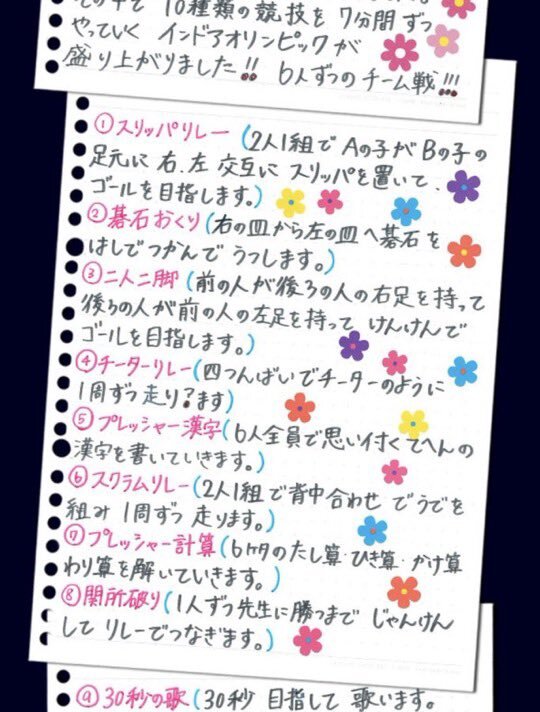 10種類の競技を 7分間ずつ
やっていく インドアオリンピックが
盛り上がりました!! 6人ずつのチーム戦!!!
①スリッパリレー (2人1組で Aの子が Bの子の
足元に 右、左 交互に スリッパを置いて、
ゴールを目指します。)
②碁石おくり(右の皿から左の皿へ碁石を
はしでつかんで うつします。)
③二人二脚 (前の人が後ろの人の右足を持って
後ろの人が前の人の左足を持って けんけんで
ゴールを目指します。)
④チーターリレー(四つんばいでチーターのように
1周ずつ走り?ます)
⑤プレッシャー漢字(6人全員で思い付くてへんの
漢字を書いていきます。)
⑥スクラムリレー(2人1組で背中合わせ でうでを
組み 1周ずつ 走ります。)
⑦プレッシャー計算(6ケタのたし算・ひき算・かけ算
わり算を解いていきます。)
⑧関所破り(1人ずつ先生に勝つまで じゃんけん
して リレーでつなぎます。)
⑨30秒の歌(30秒 目指して 歌います。